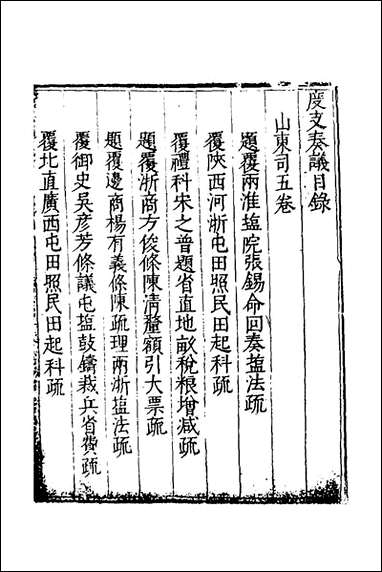 度支奏議目錄
山東司五卷
題覆兩淮塩院張錫命回奏塩法疏
覆陜西河浙屯田照民田起科疏
覆禮科宋之普題省直地畝稅粮增减疏
題覆浙商方俊條陳清釐額引大票疏
題覆邊商楊有義條陳疏理兩浙塩法疏
覆御史吳彦芳條議屯塩鼓鑄裁兵省費疏
覆北直廣西屯田照民田起科疏